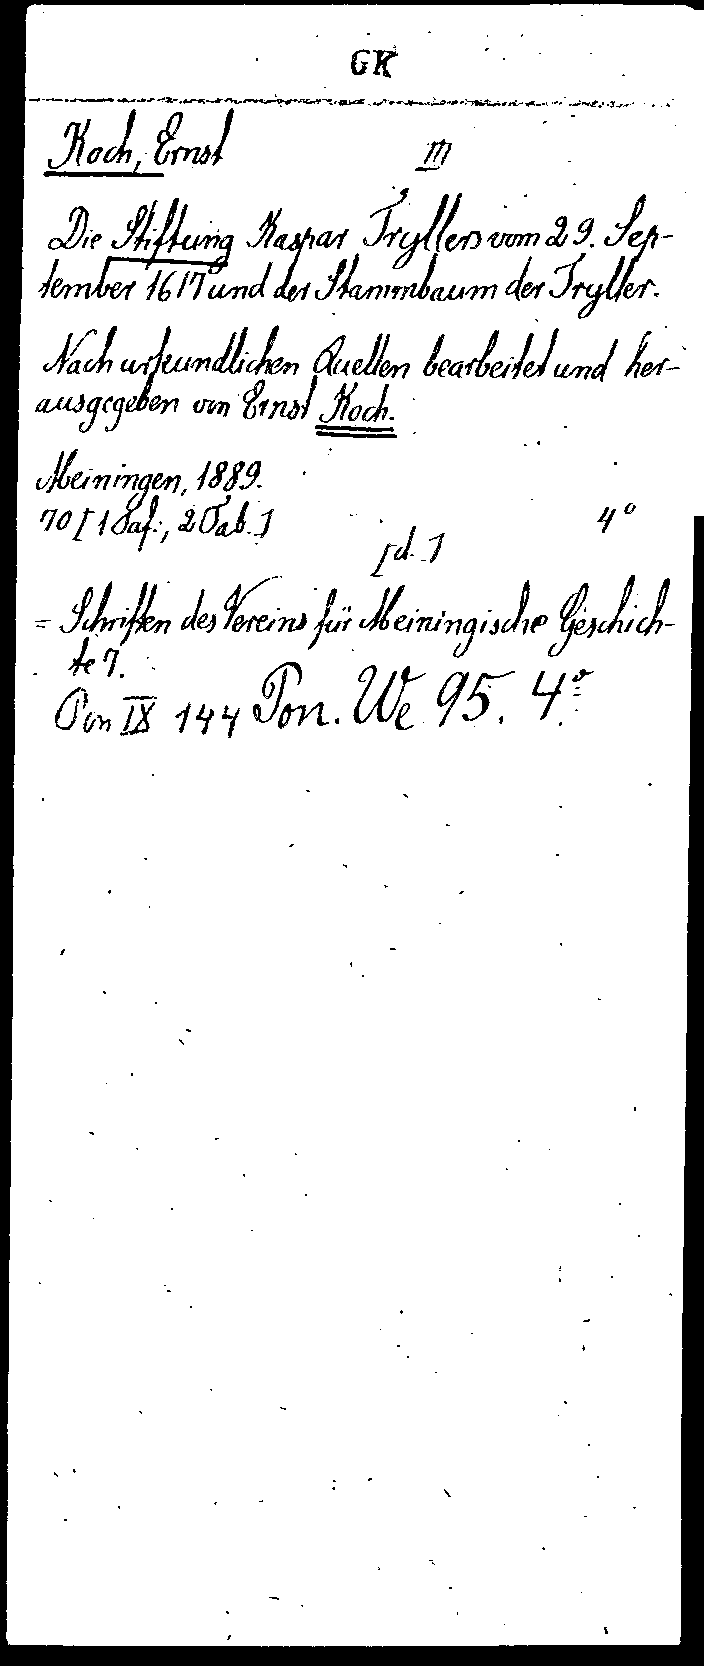 GK
Koch, Ernst III
Die Stiftung Kaspar Tryllers vom 29. Sep-
tember 1617 und der Stammbaum der Tryller.
Nach urkundlichen Quellen bearbeitet und her-
ausgegeben von Ernst Koch.
Meiningen, 1889.
70 [1 Taf., 2 Tab.] 4°
[d.]
= Schriften des Vereins für Meiningische Geschich-
te 7.
Pon IX 144 Pon. We 95. 4°